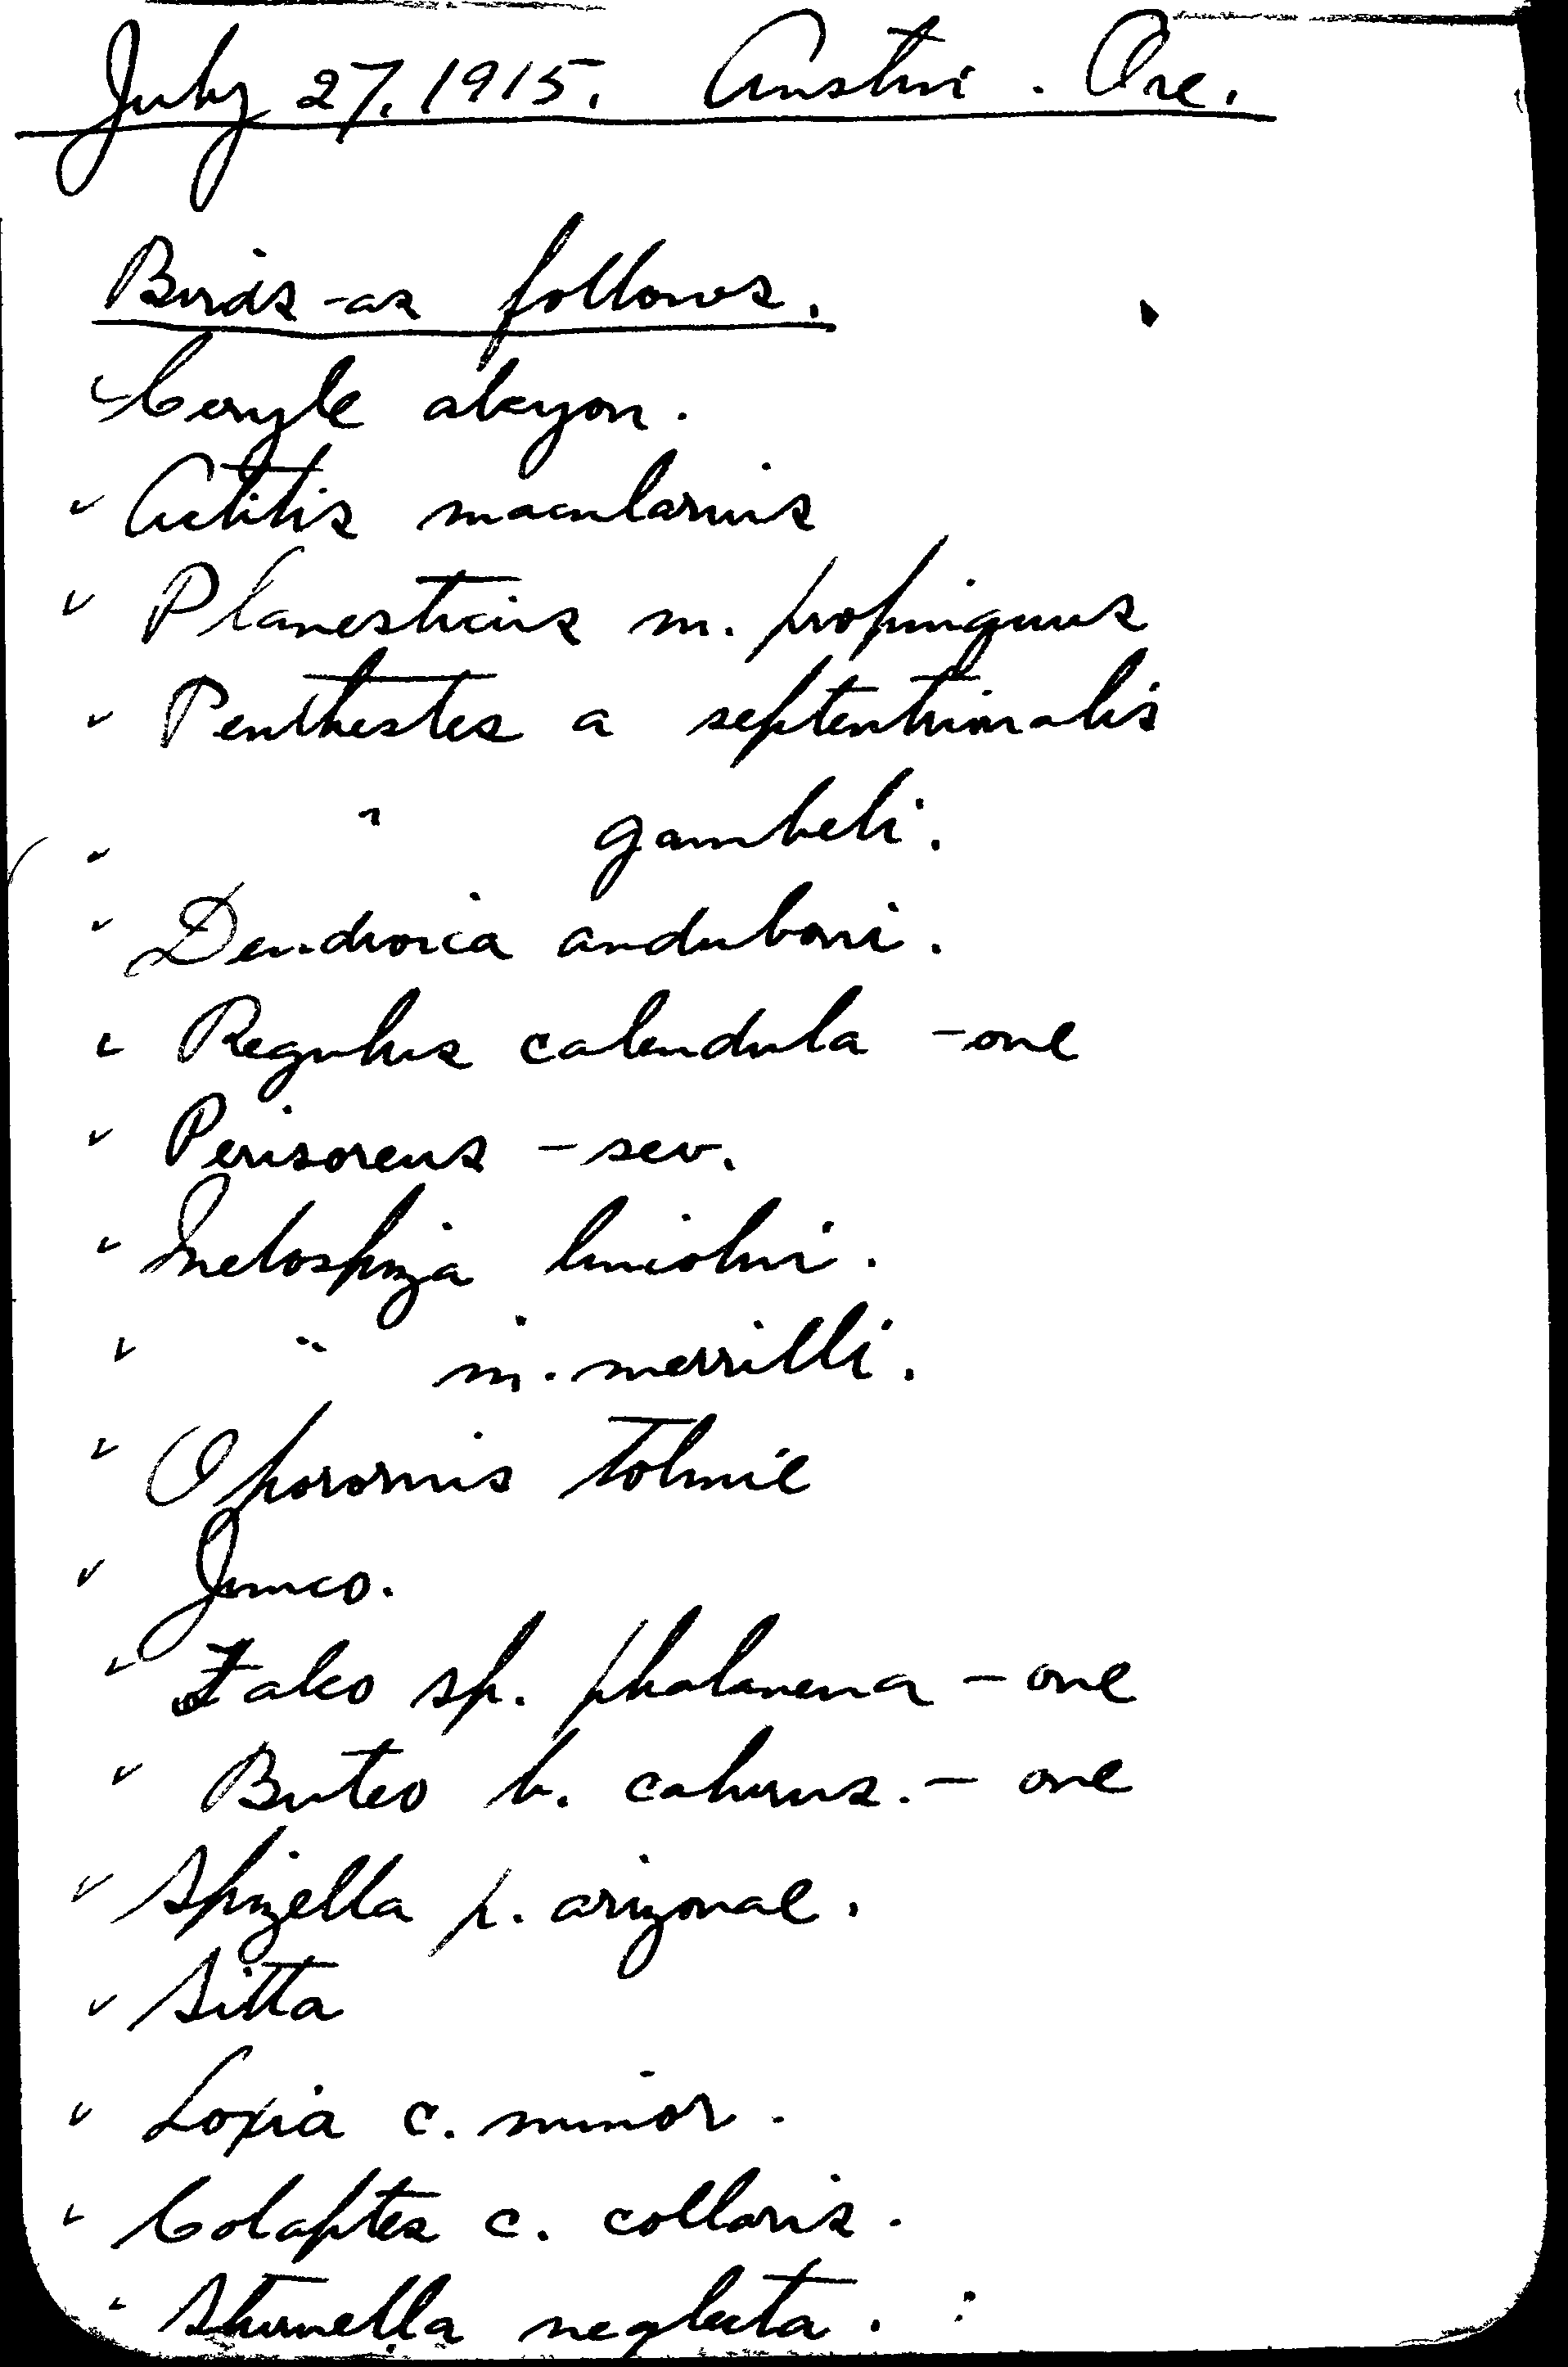 July 27, 1915. Austin. Ore.
Birds - as follows.
✓ Ceryle alcyon.
✓ Actitis macularius
✓ Planesticus m. propinquus
✓ Penthestes a septentrionalis
✓ " gambeli.
✓ Dendroica auduboni.
✓ Regulus calendula - one
✓ Perisoreus - sev.
✓ Melospiza lincolni.
✓ " m. merrilli.
✓ Oporornis tolmie
✓ Junco.
✓ Falco sp. phalavena - one
✓ Buteo b. calurus. - one
✓ Spizella p. arizonae.
✓ Sitta
✓ Loxia c. minor.
✓ Colaptes c. collaris.
✓ Sturnella neglecta. :